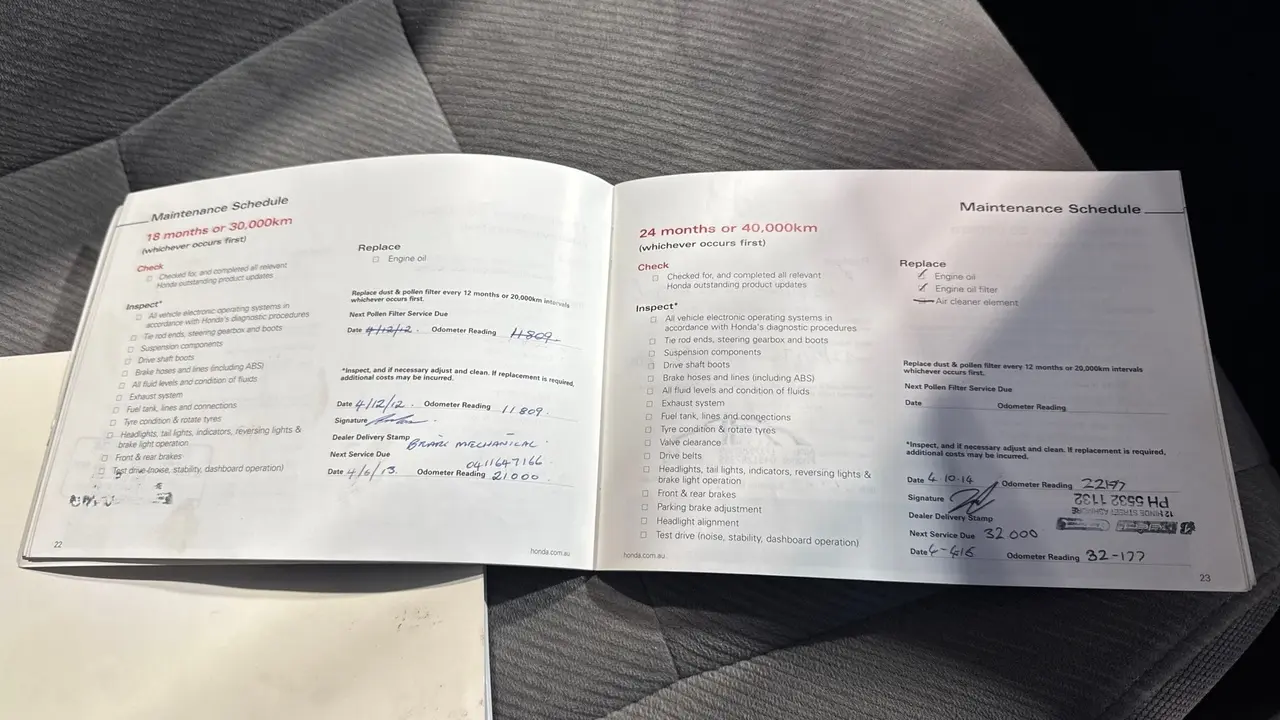 Maintenance Schedule
18 months or 30,000km
(whichever occurs first)
Check
Checked for, and completed all relevant
Honda outstanding product updates
Inspect*
All vehicle electronic operating systems in
accordance with Honda's diagnostic procedures
Tie rod ends, steering gearbox and boots
Suspension components
Drive shaft boots
Brake hoses and lines (including ABS)
All fluid levels and condition of fluids
Exhaust system
Fuel tank, lines and connections
Tyre condition & rotate tyres
Headlights, tail lights, indicators, reversing lights &
brake light operation
Front & rear brakes
Test drive (noise, stability, dashboard operation)
22
Replace
Engine oil
Replace dust & pollen filter every 12 months or 20,000km intervals
whichever occurs first.
Next Pollen Filter Service Due
Date 4/12/12. Odometer Reading 11809
*Inspect, and if necessary adjust and clean. If replacement is required,
additional costs may be incurred.
Date 4/12/12. Odometer Reading 11809.
Signature
Dealer Delivery Stamp MECHANICAL.
Next Service Due 0411647166
Date 4/6/13 Odometer Reading 21000.
honda.com.au
Maintenance Schedule
24 months or 40,000km
(whichever occurs first)
Check
Checked for, and completed all relevant
Honda outstanding product updates
Inspect*
All vehicle electronic operating systems in
accordance with Honda's diagnostic procedures
Tie rod ends, steering gearbox and boots
Suspension components
Drive shaft boots
Brake hoses and lines (including ABS)
All fluid levels and condition of fluids
Exhaust system
Fuel tank, lines and connections
Tyre condition & rotate tyres
Valve clearance
Drive belts
Headlights, tail lights, indicators, reversing lights &
brake light operation
Front & rear brakes
Parking brake adjustment
Headlight alignment
Test drive (noise, stability, dashboard operation)
honda.com.au
Replace
Engine oil
Engine oil filter
Air cleaner element
Replace dust & pollen filter every 12 months or 20,000km intervals
whichever occurs first.
Next Pollen Filter Service Due
Date Odometer Reading
*Inspect, and if necessary adjust and clean. If replacement is required,
additional costs may be incurred.
Date 4.10.14 Odometer Reading 22177
Signature
PH 5532 1132
Dealer Delivery Stamp
Next Service Due 32000
Date 4-416 Odometer Reading 32-177
23